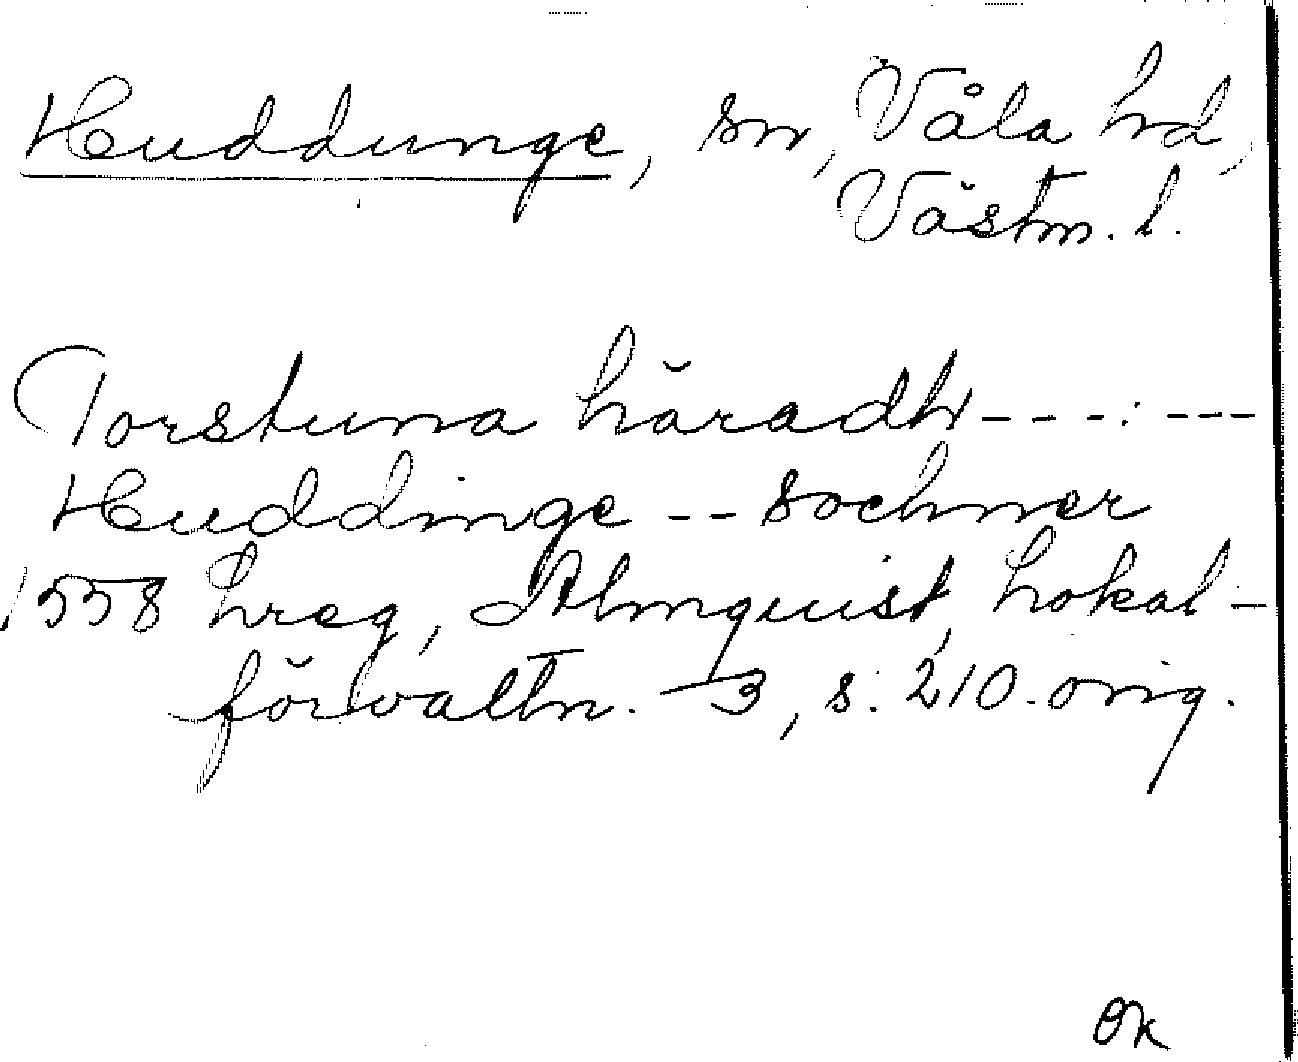 Huddunge, sn, Våla hd,
Västm. l.
Torstuna häradh - - - : - - -
Huddinge - - sochner
1558 hreg, Almquist, Lokal-
förvaltn. 3, s. 210. orig.
OK